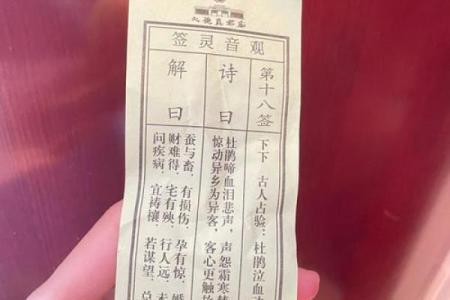 火德真君庙
观音灵签
第十八签
下下 古人占验：杜鹃泣血动
诗曰
杜鹃啼血泪悲声，声怨霜寒
惊动异乡为异客，客心更触
解曰
蚕与畜，有损伤，孕有惊，婚
财难得，宅有殃，行人远，未
问疾病，宜祷禳，若谋望，总